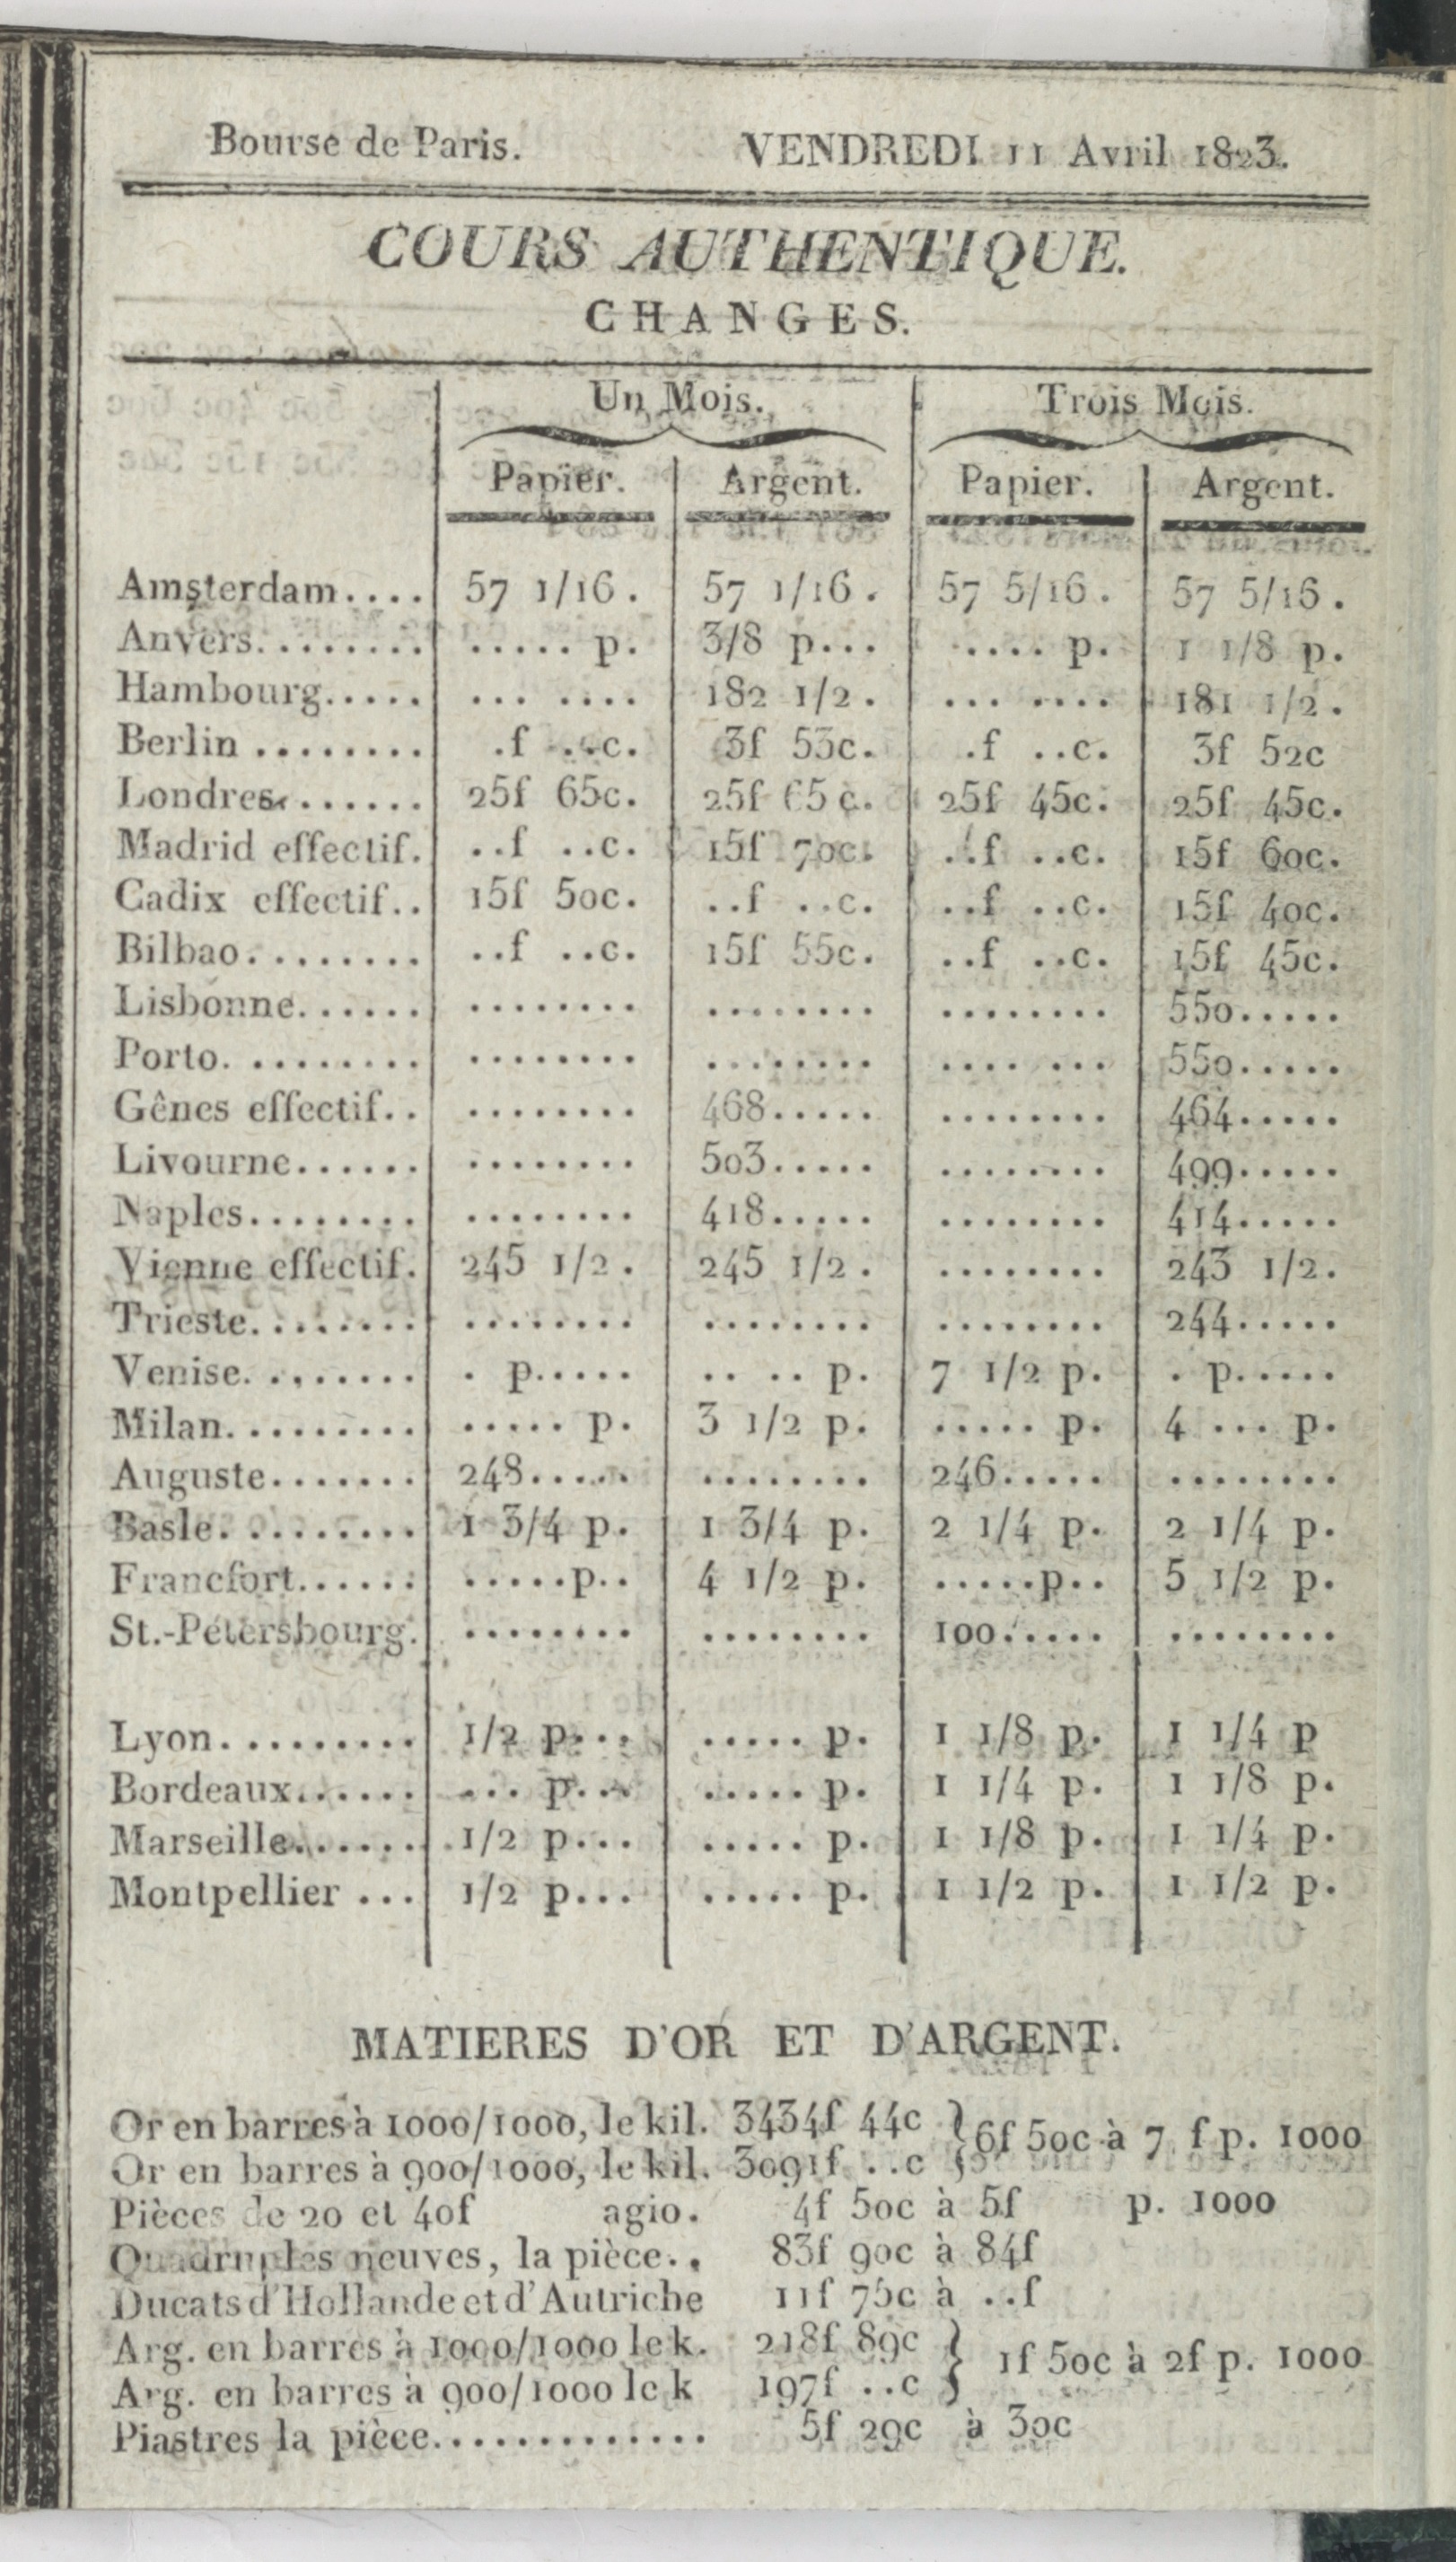 Bourse de Paris. VENDREDI 11 Avril 1823.
COURS AUTHENTIQUE.
CHANGES.
Un Mois. Trois Mois.
Papier. Argent. Papier. Argent.
Amsterdam.... 57 1/16. 57 1/16. 57 5/16. 57 5/16.
Anvers........ ..... p. 3/8 p... .... p. 1 1/8 p.
Hambourg..... ... .... 182 1/2. ... .... 181 1/2.
Berlin ........ .f ..c. 3f 53c. .f ..c. 3f 52c
Londres....... 25f 65c. 25f 65c. 25f 45c. 25f 45c.
Madrid effectif. ..f ..c. 15f 70c. ..f ..c. 15f 60c.
Cadix effectif.. 15f 50c. ..f ..c. ..f ..c. 15f 40c.
Bilbao........ ..f ..c. 15f 55c. ..f ..c. 15f 45c.
Lisbonne...... ........ ........ ........ 550.....
Porto. ........ ........ ........ .... ... 550.....
Gênes effectif.. ........ 468..... ........ 464.....
Livourne...... ........ 503..... ........ 499.....
Naples........ ........ 418..... ........ 414.....
Vienne effectif. 245 1/2. 245 1/2. ........ 243 1/2.
Trieste........ ........ ........ ........ 244.....
Venise. ....... . p..... .. .. p. 7 1/2 p. . p.....
Milan......... ..... p. 3 1/2 p. ..... p. 4 ... p.
Auguste....... 248..... ........ 246..... ........
Basle. ........ 1 3/4 p. 1 3/4 p. 2 1/4 p. 2 1/4 p.
Francfort...... .....p.. 4 1/2 p. .....p.. 5 1/2 p.
St.-Pétersbourg. ........ ........ 100..... ........
Lyon......... 1/2 p... ..... p. 1 1/8 p. 1 1/4 p
Bordeaux...... ... p... ..... p. 1 1/4 p. 1 1/8 p.
Marseille...... 1/2 p... ..... p. 1 1/8 p. 1 1/4 p.
Montpellier ... 1/2 p... ..... p. 1 1/2 p. 1 1/2 p.
MATIERES D'OR ET D'ARGENT.
Or en barres à 1000/1000, le kil. 3434f 44c } 6f 50c à 7 f p. 1000
Or en barres à 900/1000, le kil. 3091f ..c
Pièces de 20 et 40f agio. 4f 50c à 5f p. 1000
Quadruples neuves, la pièce.. 83f 90c à 84f
Ducats d'Hollande et d'Autriche 11f 75c à ..f
Arg. en barres à 1000/1000 le k. 218f 89c } 1f 50c à 2f p. 1000
Arg. en barres à 900/1000 le k 197f ..c
Piastres la pièce............. 5f 29c à 30c